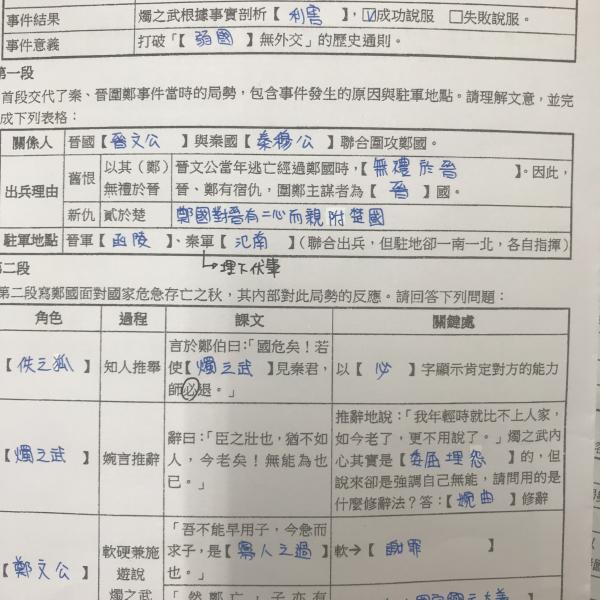 事件結果 燭之武根據事實剖析【 利害 】，☑成功說服 □失敗說服。
事件意義 打破「【 弱國 】無外交」的歷史通則。
第一段
首段交代了秦、晉圍鄭事件當時的局勢，包含事件發生的原因與駐軍地點。請理解文意，並完
成下列表格：
關係人 晉國【 晉文公 】與秦國【 秦穆公 】聯合圍攻鄭國。
出兵理由 舊恨 以其（鄭） 晉文公當年逃亡經過鄭國時，【 無禮於晉 】。因此，
無禮於晉 晉、鄭有宿仇，圍鄭主謀者為【 晉 】國。
新仇 貳於楚 鄭國對晉有二心而親附楚國
駐軍地點 晉軍【 函陵 】、秦軍【 氾南 】（聯合出兵，但駐地卻一南一北，各自指揮）
↳埋下伏筆
第二段
第二段寫鄭國面對國家危急存亡之秋，其內部對此局勢的反應。請回答下列問題：
角色 過程 課文 關鍵處
【 佚之狐 】 知人推舉 言於鄭伯曰：「國危矣！若
使【 燭之武 】見秦君，
師必退。」 以【 必 】字顯示肯定對方的能力
【 燭之武 】 婉言推辭 辭曰：「臣之壯也，猶不如
人，今老矣！無能為也
已。」 推辭地說：「我年輕時就比不上人家，
如今老了，更不用說了。」燭之武內
心其實是【 委屈埋怨 】的，但
說來卻是強調自己無能，請問用的是
什麼修辭法？答：【 婉曲 】修辭
【 鄭文公 】 軟硬兼施
遊說
燭之武 「吾不能早用子，今急而
求子，是【 寡人之過 】
也。」 軟→【 謝罪 】
「然鄭亡，子亦有